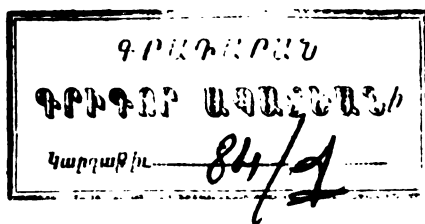 ԳՐԱԴԱՐԱՆ
ԳՐԻԳՈՐ ԱՊԱՃԵԱՆԻ
Կարգաթիւ 84/